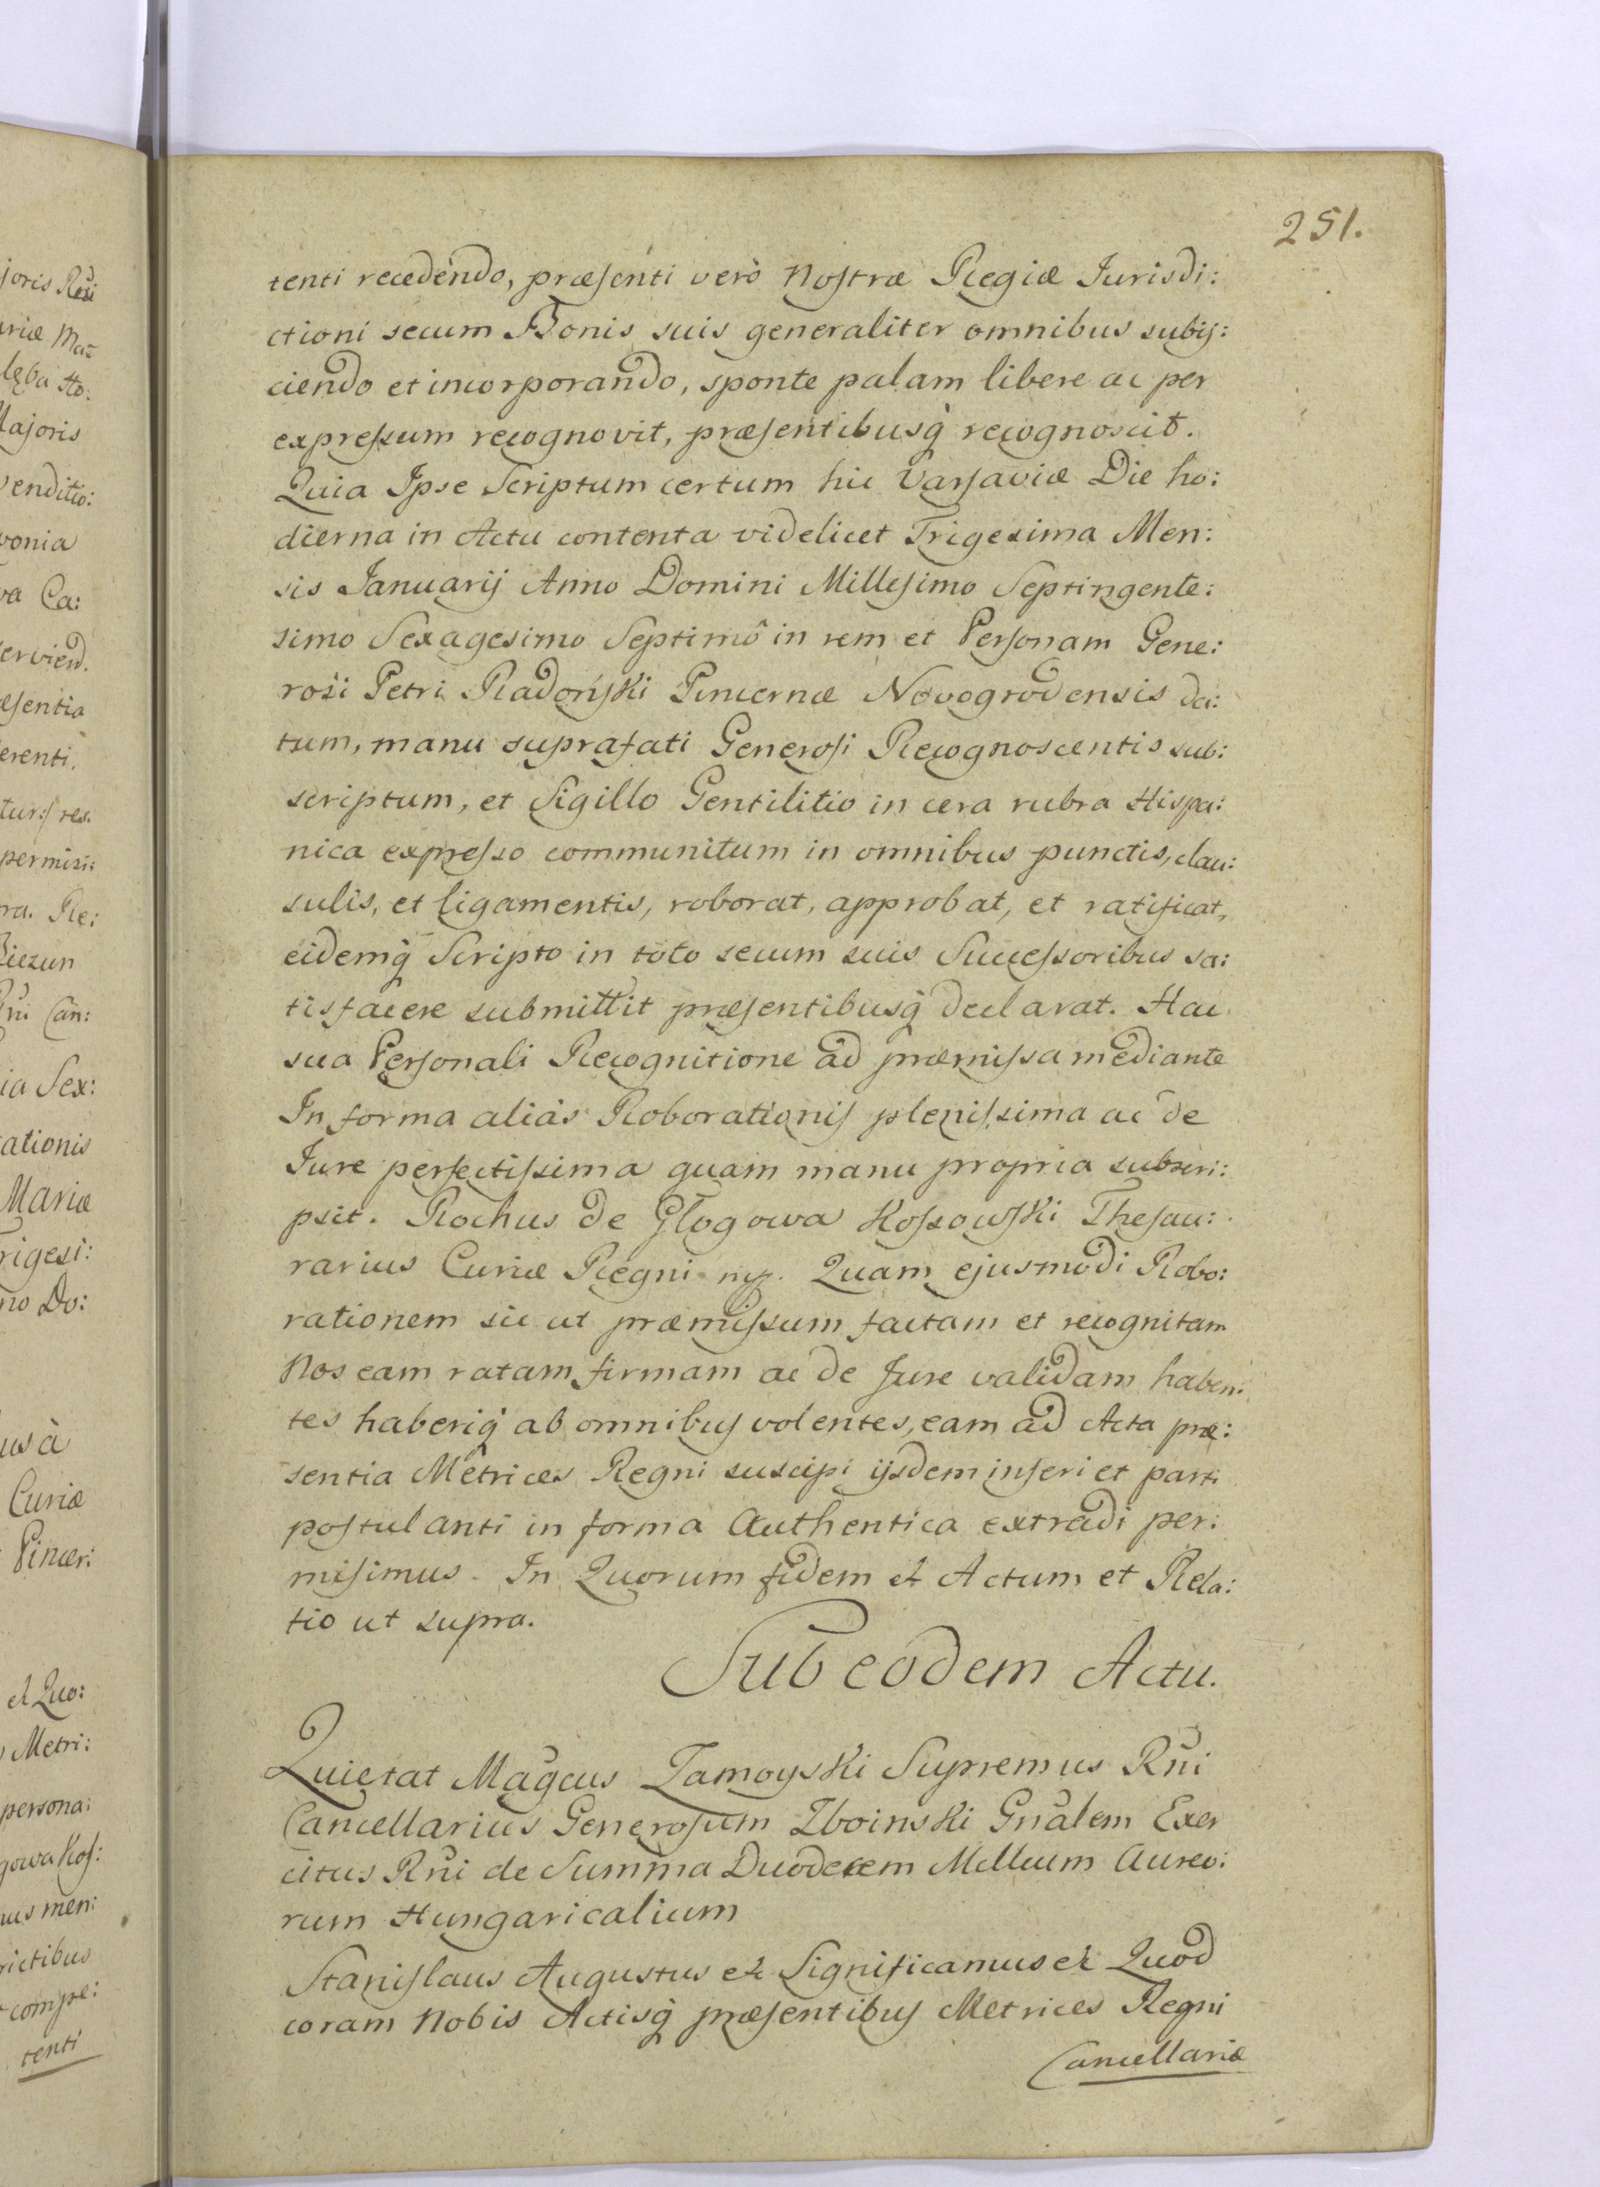 251.
tenti recedendo, præsenti verò Nostræ Regiæ Jurisdi:
ctioni secum Bonis suis generaliter omnibus subij:
ciendo et incorporando, sponte palam libere ac per
expressum recognovit, præsentibusq́ recognoscit.
Quia Ipse Scriptum certum hic Varsaviæ Die ho:
dierna in Actu contenta videlicet Trigesima Men:
sis Januarij Anno Domini Millesimo Septingente:
simo Sexagesimo Septimô in rem et Personam Gene:
rosi Petri Radoński Pincernæ Novogrodensis da:
tum, manu suprafati Generosi Recognoscentis sub:
scriptum, et Sigillo Gentilitio in cera rubra Hispa:
nica expresso communitum in omnibus punctis, clau:
sulis, et ligamentis, roborat, approbat, et ratificat,
eidemq́ Scripto in toto secum suis Successoribus sa:
tisfacere submittit præsentibusq́ declarat. Hac
sua Personali Recognitione ad præmissa mediante
In forma aliàs Roborationis plenissima ac de
Jure perfectissima quam manu propria subscri:
psit. Rochus de Głogowa Kossowski Thesau:
rarius Curiæ Regni mp. Quam ejusmodi Robo:
rationem sic ut præmissum factam et recognitam
Nos eam ratam firmam ac de Jure validam haben:
tes haberiq́ ab omnibus volentes, eam ad Acta præ:
sentia Metrices Regni suscipi ijsdem inseri et parti
postulanti in forma Authentica extradi per:
misimus. In Quorum fidem et Actum et Rela:
tio ut supra.
Sub eodem Actu.
Quietat Mag̃cus Zamoyski Supremus Rñi
Cancellarius Generosum Zboinski Gñalem Exer
citus Rñi de Summa Duodecem Millium Aureo:
rum Hungaricalium
Stanislaus Augustus et Significamus et Quod
coram Nobis Actisq́ præsentibus Metrices Regni
Cancellariæ
joris Regi
ariæ Mat
Majoris
venditio:
vonia
va Ca:
erviend.
æsentia
erenti.
tur:/ res.
permisi:
ra. Re:
Biezun
Rñi Can:
ia Sex:
ationis
Mariæ
rigesi:
no Do:
us à
Curiæ
Pincer:
et Quo:
Metri:
persona:
gowa Kos:
us men:
ictibus
compe:
tenti